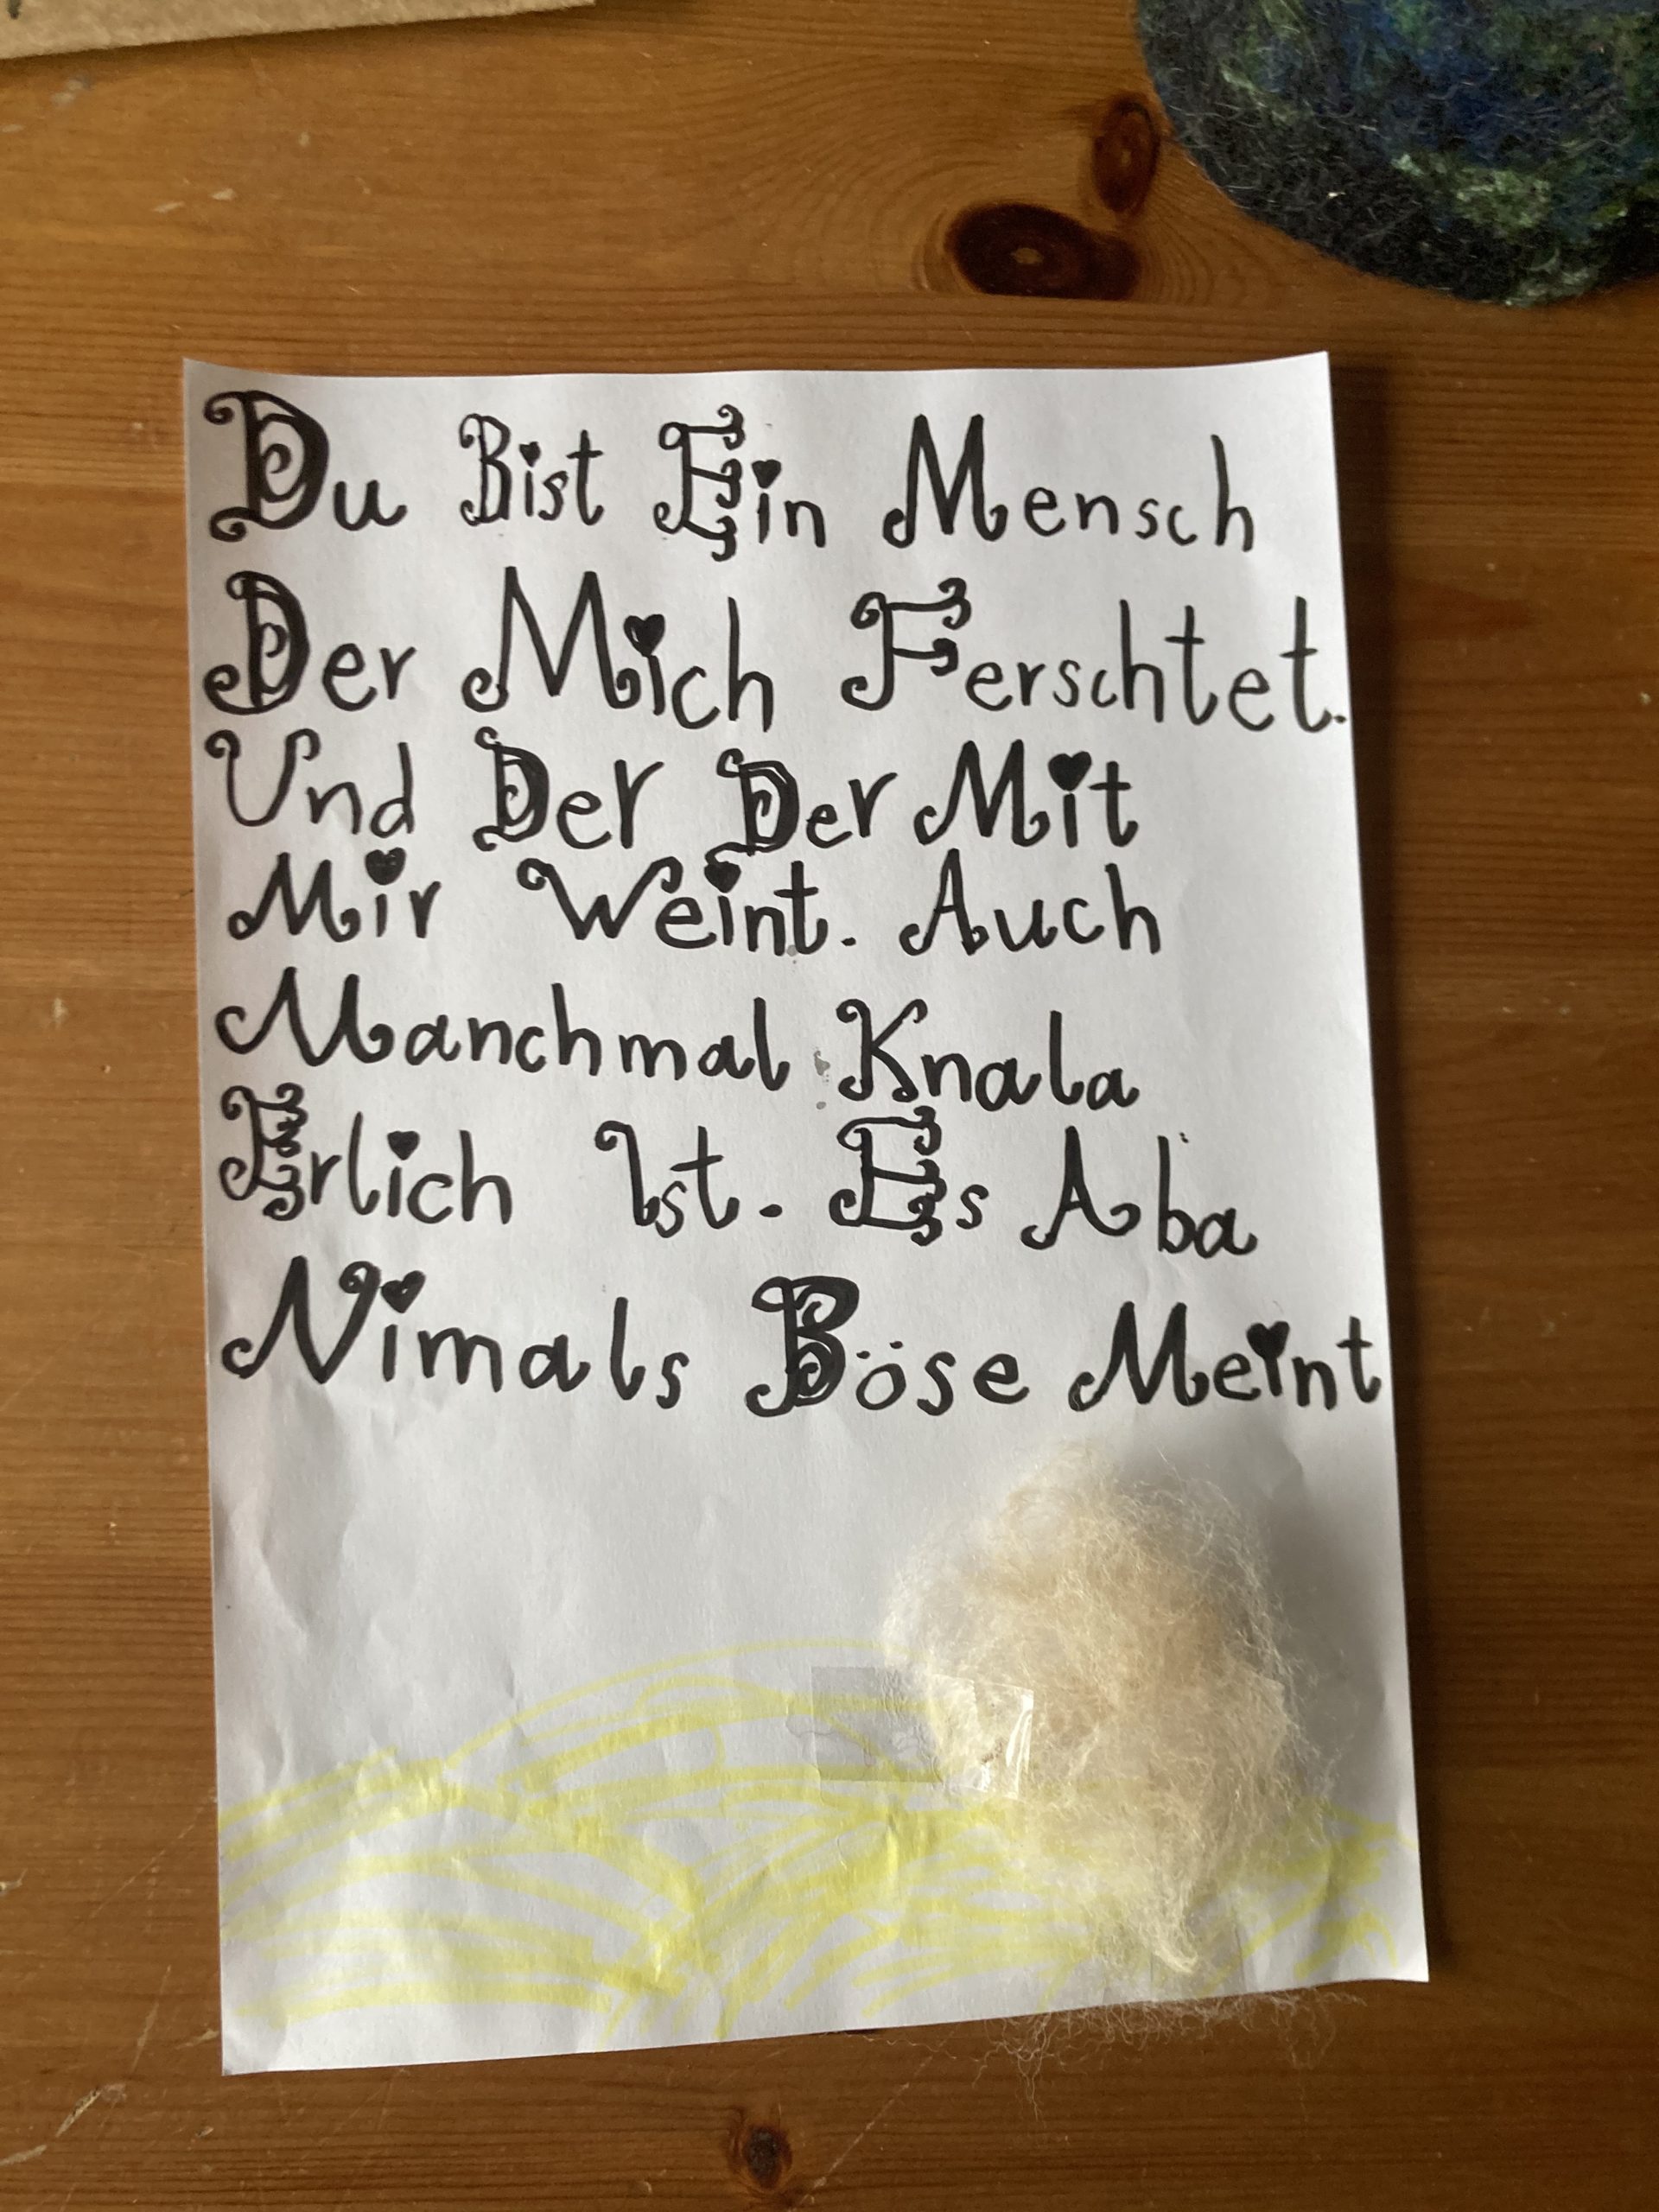 Du Bist Ein Mensch
Der Mich Ferschtet.
Und Der Der Mit
Mir Weint. Auch
Manchmal Knala
Erlich Ist. Es Aba
Nimals Böse Meint